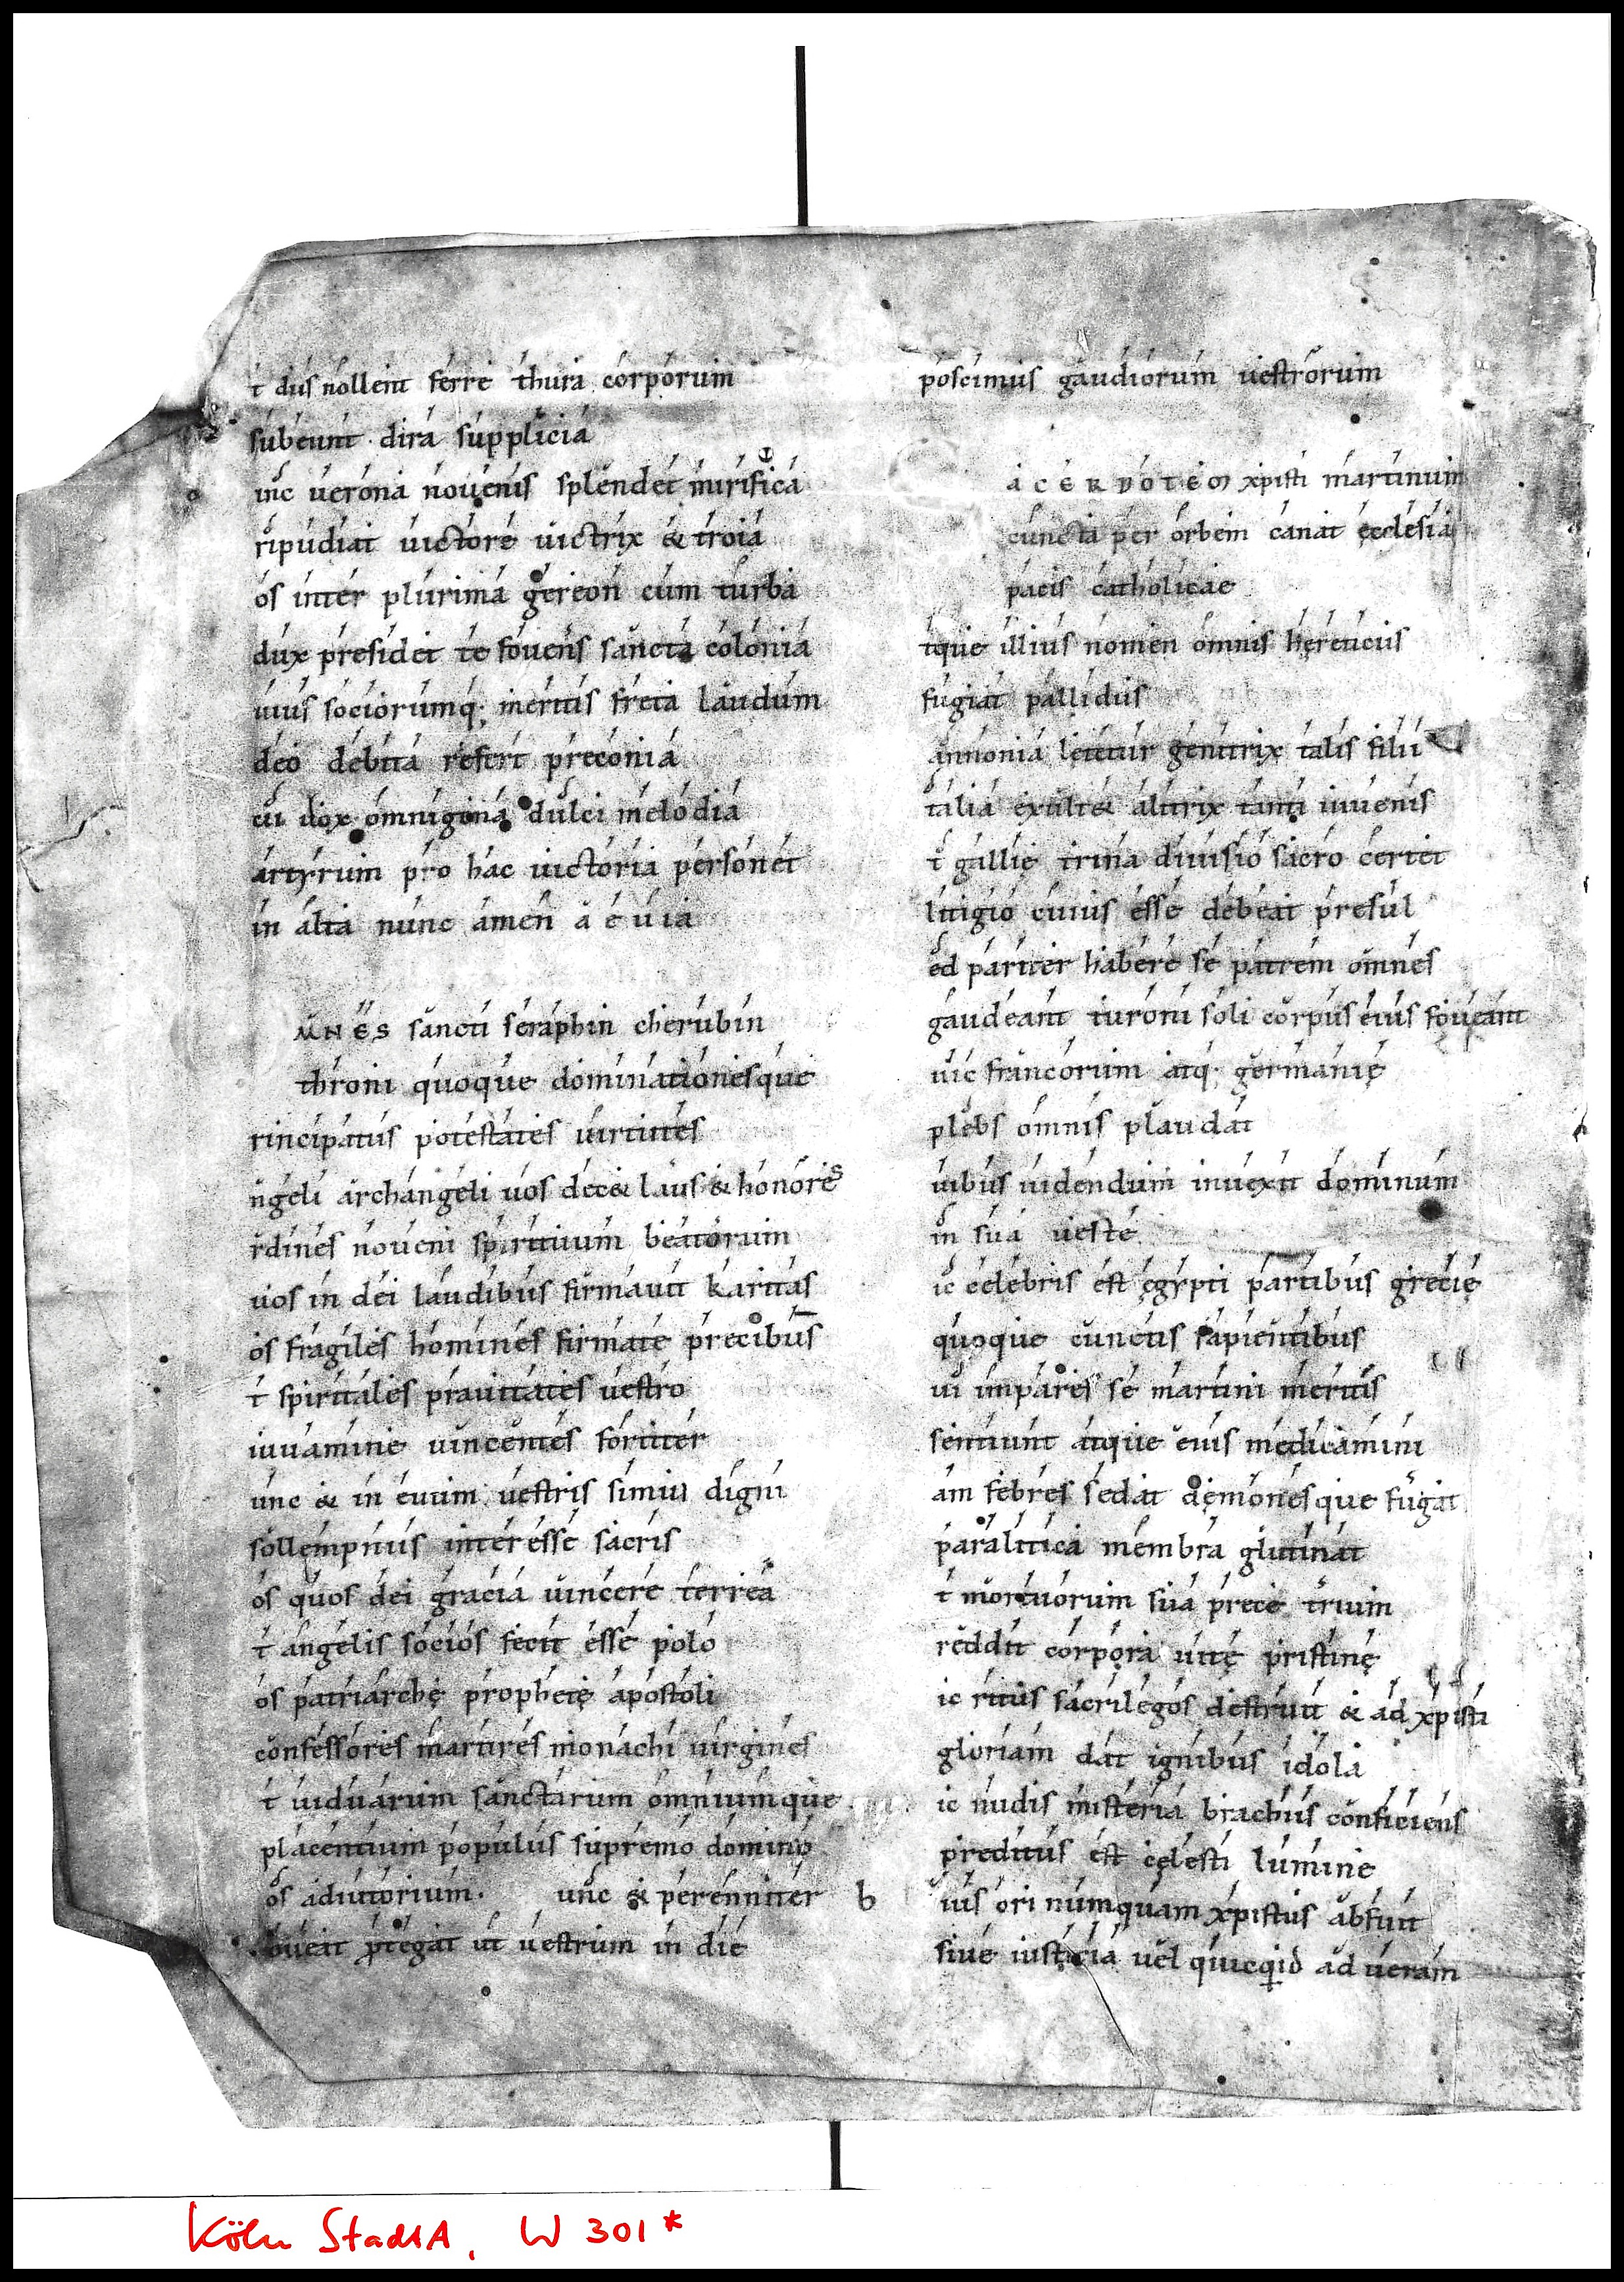 t dus nollent ferre thura corporum
subeunt dira supplicia
inc uerona nouenis splendet mirifica
ripudiat uictore uictrix & troia
os inter plurima gereon cum turba
dux presidet te fouens sancta colonia
uius sociorumq; meritis freta laudum
deo debita refert preconia
cui uox omnigena dulci melodia
artyrum pro hac uictoria personet
in alta nunc amen a e u ia
MNES sancti seraphin cherubin
throni quoque dominationesque
rincipatus potestates uirtutes
ngeli archangeli uos dec& laus & honores
rdines noueni spirituum beatorum
uos in dei laudibus firmauit karitas
os fragiles homines firmate precibus
t spiritales prauitates uestro
iuuamine uincentes fortiter
unc & in euum uestris simus digni
sollempniis interesse sacris
os quos dei gracia uincere terrea
t angelis socios fecit esse polo
os patriarchę prophetę apostoli
confessores martires monachi uirgines
t uiduarum sanctarum omniumque
placentium populus supremo domino
os adiutorium. unc & perenniter
oueat protegat ut uestrum in die
poscimus gaudiorum uestrorum
ACERDOTEM xpisti martinum
cuncta per orbem canat ęcclesia
pacis catholicae
tque illius nomen omnis hereticus
fugiat pallidus
annonia lętetur genitrix talis filii
talia exult& altrix tanti iuuenis
t gallię trina diuisio sacro certet
litigio cuius esse debeat presul
ed pariter habere se patrem omnes
gaudeant turoni soli corpus eius foueant
uic francorum atq; germanię
plebs omnis plaudat
uibus uidendum inuexit dominum
in sua ueste
ic celebris est ęgypti partibus grecię
quoque cunctis sapientibus
ui impares se martini meritis
sentiunt atque eius medicamini
am febres sedat dęmonesque fugat
paralitica membra glutinat
t mortuorum sua prece trium
reddit corpora uitę pristinę
ic ritus sacrilegos destruit & ad xpisti
gloriam dat ignibus idola
ic nudis misteria brachiis conficiens
preditus est cęlesti lumine
b
uius ori numquam xpistus abfuit
siue iusticia uel quicqid ad ueram
Köln StadtA, W 301*